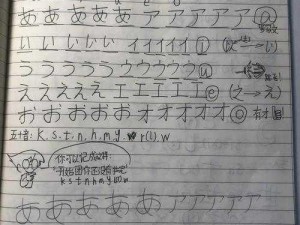 あああああアアアアアⓐ
いいいいいイイイイイⓘ い
うううううウウウウウⓤ
えええええエエエエエⓔ(え→え)
おおおおおオオオオオⓞ
五十音: k.s.t.n.h.m.y r(l).w
你可以记成这样
"开始
k s t n h m y
あああああアアアアア